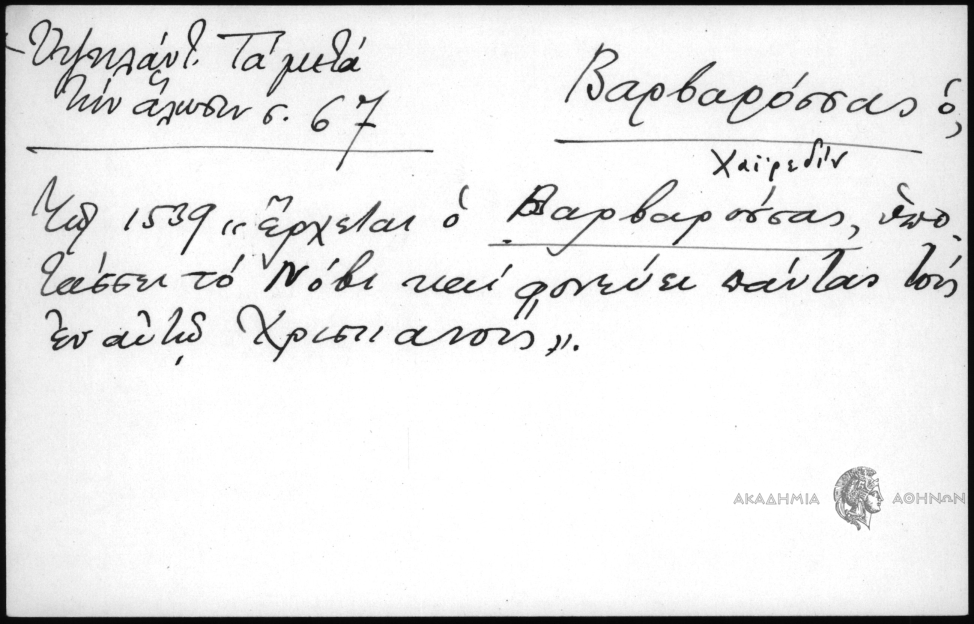 Ὑψηλάντ. Τά μετά
τήν ἅλωσιν σ. 67
Βαρβαρόσσας ὁ,
Χαϊρεδίν
Τῷ 1539 «ἔρχεται ὁ Βαρβαρόσσας, ὑπο-
τάσσει τό Νόβι καί φονεύει πάντας τούς
ἐν αὐτῷ Χριστιανούς».
ΑΚΑΔΗΜΙΑ ΑΘΗΝΩΝ